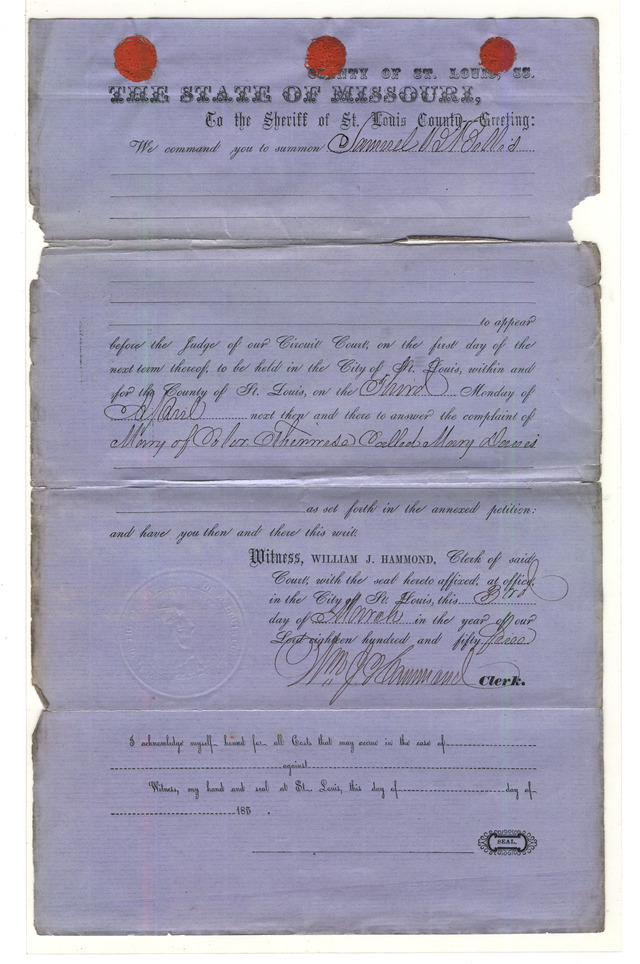 COUNTY OF ST. LOUIS, SS.
THE STATE OF MISSOURI,
To the Sheriff of St. Louis County—Greeting:
We command you to summon Samuel
to appear
before the Judge of our Circuit Court, on the first day of the
next term thereof, to be held in the City of St. Louis, within and
for the County of St. Louis, on the Third Monday of
April next then and there to answer the complaint of
Mary of Color Called Mary
as set forth in the annexed petition:
and have you then and there this writ.
Witness, WILLIAM J. HAMMOND, Clerk of said
Court, with the seal hereto affixed, at office,
in the City of St. Louis, this 3rd
day of March in the year of our
Lord eighteen hundred and fifty
Wm J Hammond Clerk.
I acknowledge myself bound for all Costs that may accrue in the case of
against
Witness, my hand and seal at St. Louis, this day of day of
185 .
SEAL.